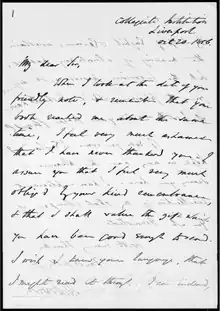 1
Collegiate Institution
Liverpool
Oct 20. 1856
My dear Sir,
When I look at the date of your
friendly note, & remember that your
book reached me about the same
time, I feel very much ashamed
that I have never thanked you. I
assure you that I feel very much
obliged by your kind remembrance
& that I shall value the gift which
you have been good enough to send.
I wish I knew your language, that
I might read it thro'. I can indeed,